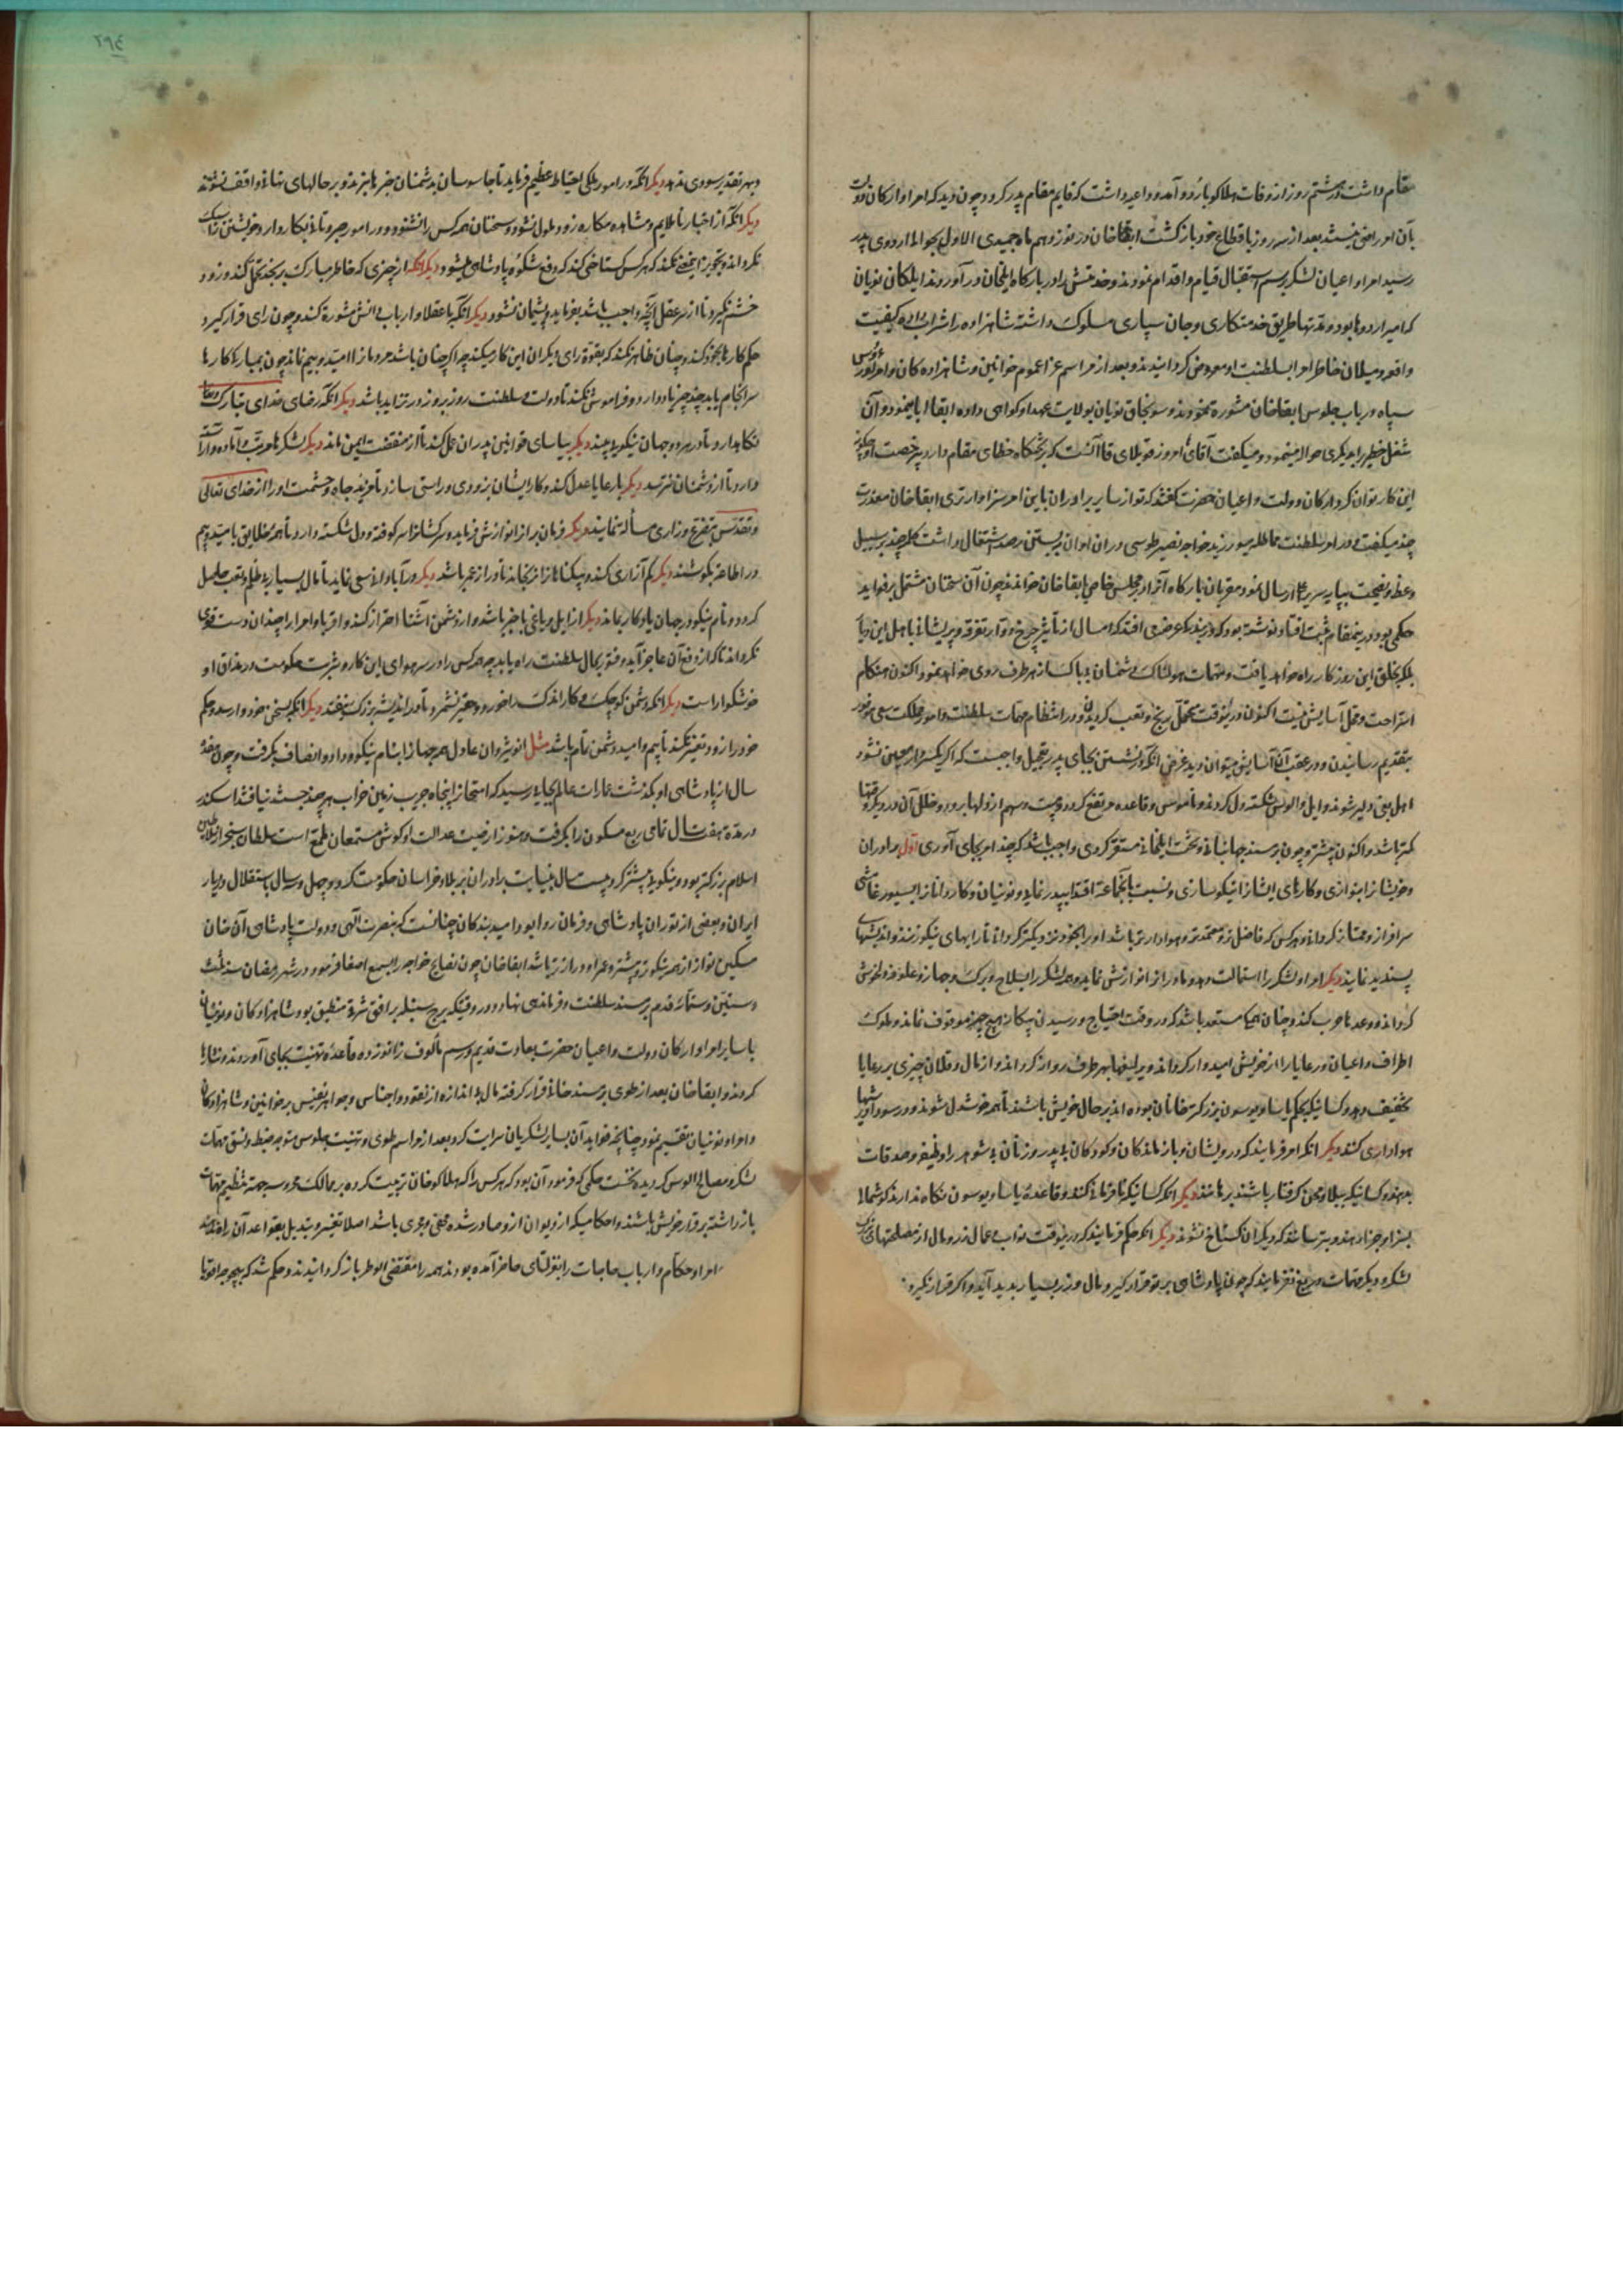 مقام داشت هشتم روز از وفات هلاکو باردو آمد و داعیه داشت که قایم مقام پدر کردد چون دید که امرا و ارکان دولت
بآن امر راضی نیستند بعد از سه روز باقطاع خود بازکشت ابقاخان در نوزدهم ماه جمیدی الاول بحوالی اردوی پدر
رسید امرا و اعیان لشکر برسم استقبال قیام و اقدام نمودند و خدمتش را در بارکاه ایلخان در آوردند ایلکان نویان
که امیر اردوها بود و مدتها طریق خدمتکاری و جان سپاری مسلوک داشته شاهزاده را شراب داده کیفیت
واقعه و میلان خاطر امرا بسلطنت او معروض کردانیدند و بعد از مراسم عزا عموم خواتین و شاهزاده کان و امرا
سپاه در باب جلوس ابقاخان مشوره نمودند و سونجاق نویان بولایت عهد او کواهی داده ابقا ابا مینمود و آن
شغل خطیر را بدیکری حواله مینمود و میکفت آقای امروز قوبلای قاآنست که بر تختکاه خطای مقام دارد بی رخصت او چکونه
این کار توان کرد ارکان دولت و اعیان حضرت کفتند که تو از سایر برادران باین امر سزاوارتری ابقاخان معذرت
چند میکفت و در امر سلطنت مماطله میورزید خواجه نصیر طوسی در ان اوان برصد اشتغال داشت کلمه چند بر سبیل
وعظ و نصیحت بپایه سریر ارسال نمود مقربان بارکاه آنرا در مجلس خاص بابقاخان خواندند چون آن سخنان مشتمل بر فواید
حکمی بود درینمقام ثبت افتاد نوشته بود که بنده عرضه می افتد که امسال از تأثیر چرخ دوار تفرقه و پریشانی باهل این دیار
بلکه بخلق این روزکار راه خواهد یافت و مهمات هولناک و دشمنان بی باک از هر طرف روی خواهد نمود و اکنون هنکام
استراحت و محل آسایش نیست اکنون درینوقت تحمل رنج و تعب کردن و در انتظام مهمات سلطنت و امور مملکت سعی موفور
بتقدیم رسانیدن و در عقب آن آسایش میتوان دید غرض آنکه نشستن بجای پدر بتعجیل واجبست که اکر یکسر کار معین نشود
اهل بغی دلیر شوند و ایل و الوس شکسته دل کردند و ناموس و قاعده مرتفع کردد و هیبت و سهم از دلها برود و خلل آن در دیکر وقتها
کمتر باشد و اکنون بیشتر و چون بر مسند جهانبانی و تخت ایلخانی مستقر کردی واجب باشد که چند امر بجای آوری اول برادران
و خویشانرا بنوازی و کارهای ایشانرا نیکو سازی و نسبت بآنجماعة اقتدا بپدر نماید و نوئیان و کاردانانرا بسیورغامشی
سرافراز و ممتاز کردانی و هر کس که فاضل تر و معتمدتر و هوادارتر باشد او را بخود نزدیکتر کردانی تا رایهای نیکو زنند و اندیشهای
پسندیده نمایند دیکر امرا و لشکر را استمالت دهد و مادر انرا نوازش نماید و همه لشکر را بسلاح و برک و جهاز و علوفه دلخوش
کرداند و وعدها خوب کند و چنان مهیا مستعد باشد که در وقت احتیاج و رسیدن پیکار بهیچ چیز موقوف نماند و ملوک
اطراف و اعیان و رعایا را از خویش امیدوار کرداند و یرلیغها بهر طرف روانه کرداند و از مال و قلان چیزی بر رعایا
تخفیف دهد و کسانیکه بحکم یاسا و یوسون بزرکتر خانان بوده اند بر حال خویش باشند تا همه خوشدل شوند و در سود او
هواداری کنند دیکر آنکه امر فرمایند که درویشان و بازماندکان و کودکان بی پدر و زنان بی شوهر را وظیفه و صدقات
بدهند و کسانیکه ببلا و محن کرفتار باشند برهانند دیکر آنکه کسانیکه نافرمانی کنند و قاعدهٔ یاسا و یوسون نکاه ندارند کوشمالی
بسزا و جزا دهند و بترسانند که دیکران کستاخ نشوند دیکر آنکه حکم فرمایند که درینوقت نواب و عمال زر و مال از مصلحتهای بزرک
لشکر و دیکر مهمات دریغ نفرمایند که چون پادشاهی بر تو قرار کیرد مال و زر بسیار پدید آید و اکر قرار نکیرد
وبهر تقدیر سودی ندهد دیکر آنکه در امور ملکی احتیاط عظیم فرماید تا جاسوسان بدشمنان خبرها نبرند و بر حالهای نهانی واقف نشوند
دیکر آنکه از اخبار ناملایم و مشاهده مکاره زود ملول نشود و سخنان همه کس را نشنود و در امور صبر و تأنی بکار دارد و خویشتن را سبک
نکرداند و تجویز این معنی نکند که هر کس کستاخی کند که دفع شکوه پادشاهی میشود دیکر آنکه از چیزی که خاطر مبارک برنجد تحمل کند و زود
خشم نکیرد تا از سر عقل آنچه واجب باشد بفرماید و پشیمان نشود دیکر آنکه با عقلا و ارباب دانش مشورة کند و چون رای قرار کیرد
حکم کارها بخود کند و چنان ظاهر نکند که بقوة رای دیکران این کار میکند چه اکر چنان باشد مردمانرا امید و بیم نماند چون بمبارکی کارها
سرانجام یابد چند چیز یاد دارد و فراموش نکند تا دولت و سلطنت روز بروز در تزاید باشد دیکر آنکه رضای خدای تبارک و تعالی
نکاهدارد تا در هر دو جهان نیکویی بیند دیکر بیاسای و قوانین پدران عمل کند تا از منقصت ایمن ماند دیکر لشکر را مرتب و آماده و آراسته
دارد تا از دشمنان نترسد دیکر با رعایا عدل کند و کار ایشان بزودی و راستی سازد تا مزید جاه و حشمت او را از خدای تعالی
و تقدس بتضرع و زاری مسألت نمایند دیکر فرمان برانرا نوازش فرماید و سرکشانرا سرکوفته و دل شکسته دارد تا همه خلایق بامید و بیم
در اطاعت بکوشند دیکر کم آزاری کند و بیکناهانرا نرنجاند تا دراز عمر باشد دیکر در آبادانی سعی نماید تا مال بسیار بی ظلم و تعب حاصل
کردد و نام نیکو در جهان یادکار بماند دیکر از ایل و یاغی باخبر باشد و از دشمن آشنا احتراز کند و اقربا و امرا را چندان دست قوی
نکرداند که از دفع آن عاجز آید و فتور بحال سلطنت راه یابد چه هر کس را در سر هوای این کار و شربت حکومت در مذاق او
خوشکوار است دیکر آنکه دشمن کوچک و کار اندک را خرد و حقیر نشمرد تا در اندیشه بزرک نیفتد دیکر آنکه بسخن خود وا رسد و حکم
خود را زود تغییر نکند تا بیم و امید دشمن تمام باشد مثل انوشروان عادل همه جهانرا بنام نیکو و داد و انصاف بکرفت و چون
سال از پادشاهی او بکذشت عمارات عالم بجایی رسید که امتحانرا پنجاه جریب زمین خراب هر چند جستند نیافتند اسکندر
در مدة هفت سال تمامی ربع مسکون را بکرفت و هنوز از صیت عدالت او کوش مستمعان ملتمع است سلطان سنجر از سلاطین
اسلام بزرکتر بود و نیکویی بیشتر کرد بیست سال بنیابت برادران بر بلاد خراسان حکومت کرد و چهل و سال باستقلال در دیار
ایران و بعضی از توران پادشاهی و فرمان روا بود امید بندکان چنانست که بنصرت الهی و دولت پادشاهی آن شان
مسکین نواز از همه نیکوتر و بیشتر و عمر او درازتر باشد ابقاخان چون نصایح خواجه را بسمع اصغا فرمود در شهر رمضان سنه ثلث
و ستین و ستمائه قدم بر مسند سلطنت و فرماندهی نهاد و در وقتیکه برج سنبله بر افق شرق منطبق بود شاهزادکان و نوئینان
با سایر امرا و ارکان دولت و اعیان حضرت بعادت قدیم و رسم مألوف زانو زده قاعدهٔ تهنیت بجای آوردند و نثارها
کردند و ابقاخان بعد از طوی بر مسند خانی قرار کرفته مال بی اندازه از نقود و اجناس و جواهر نفیس بر خواتین و شاهزادکان
و امرا و نوئینان تقسیم نمود چنانچه فواید آن بسایر لشکریان سرایت کرد و بعد از مراسم طوی و تهنیت جلوس متوجه ضبط و نسق مهمات
لشکر و مصالح الوس کردیده نخست حکمی که فرمود آن بود که هر کس را که هلاکوخان تربیت کرده بر ممالک محروسه جهة تنظیم مهمات
بازداشته برقرار خویش باشند و احکامیکه از دیوان او صادر شده ممضی و مجری باشد اصلا تغییر و تبدیل بقواعد آن راه ندهند
امرا و حکام و ارباب حاجات را بقولتای حاضر آمده بودند همه را مقضی الوطر بازکردانیدند و حکم شد که بهیچ وجه اقویا